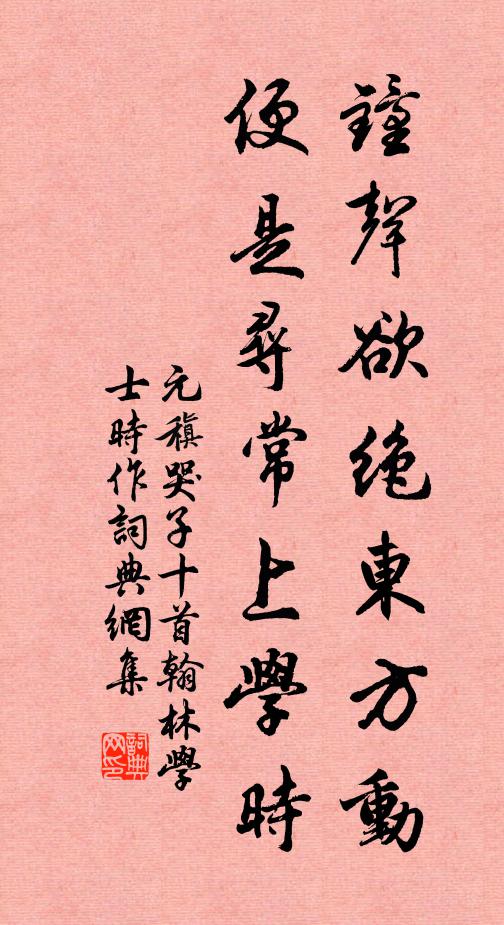 鐘聲欲絶東方動
便是尋常上學時
元稹哭子十首翰林學
士時作詞典網集
詞典
网印